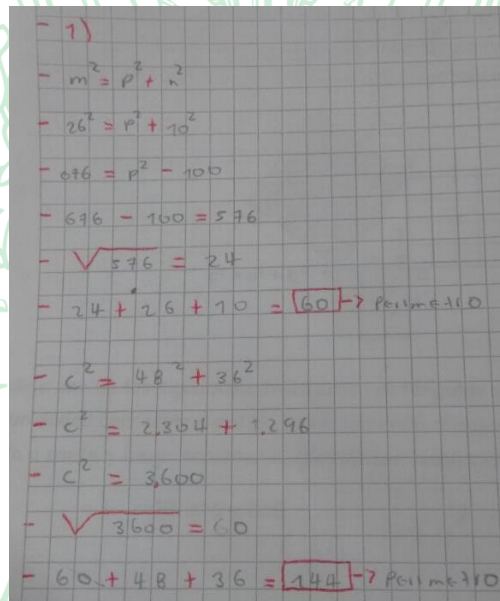 - 1)
- m² = p² + n²
- 26² = p² + 10²
- 676 = p² - 100
- 676 - 100 = 576
- √576 = 24
- 24 + 26 + 10 = 60 -> Perimetro
- c² = 48² + 36²
- c² = 2,304 + 1,296
- c² = 3,600
- √3600 = 60
- 60 + 48 + 36 = 144 -> Perimetro